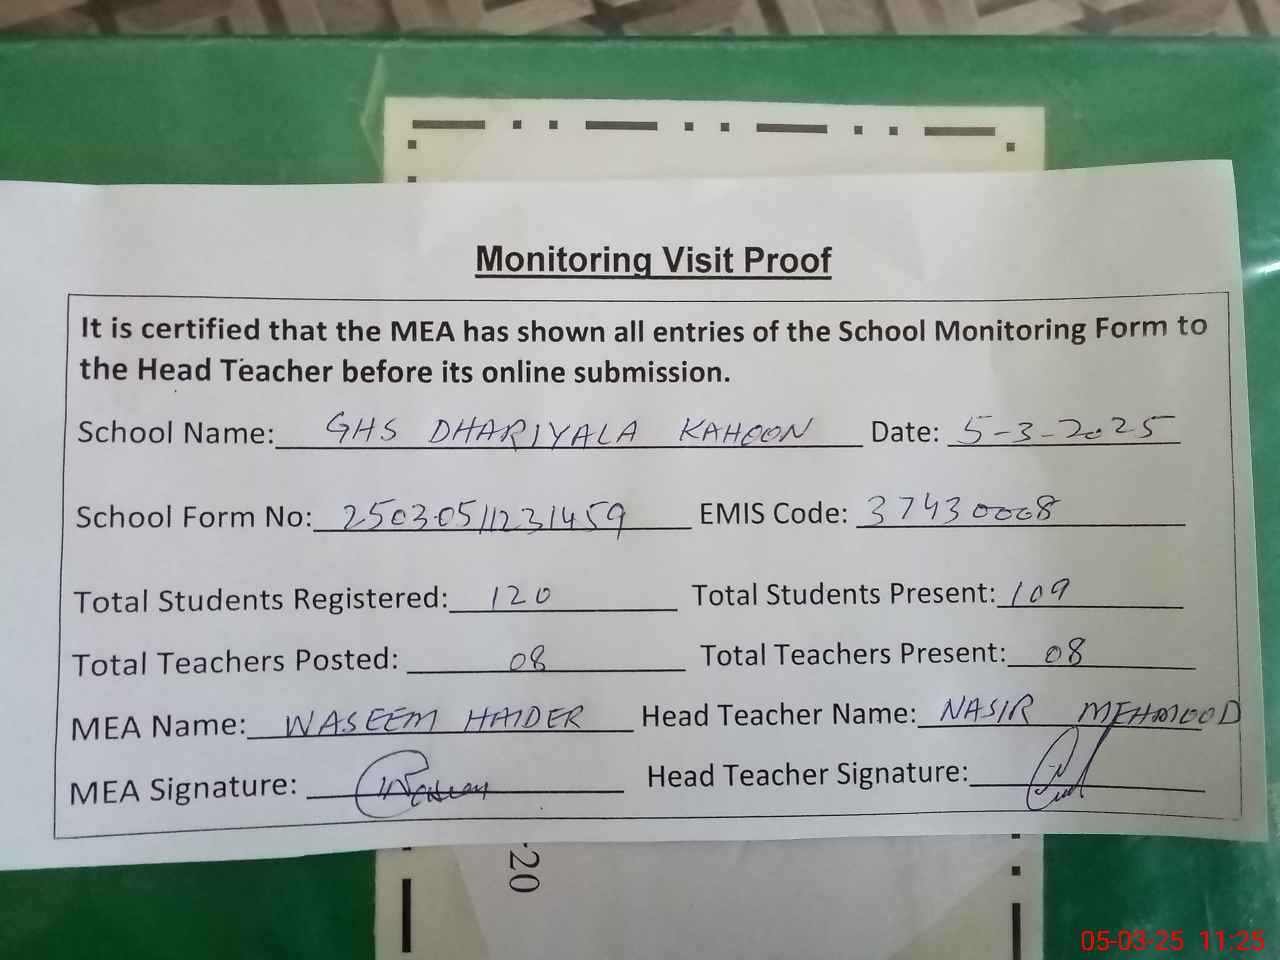 Monitoring Visit Proof
It is certified that the MEA has shown all entries of the School Monitoring Form to
the Head Teacher before its online submission.
School Name: GHS DHARIYALA KAHOON Date: 5-3-2025
School Form No: 25030511231459 EMIS Code: 37430008
Total Students Registered: 120 Total Students Present: 109
Total Teachers Posted: 08 Total Teachers Present: 08
MEA Name: WASEEM HAIDER Head Teacher Name: NASIR MEHMOOD
MEA Signature: Head Teacher Signature:
-20
05-03-25 11:25